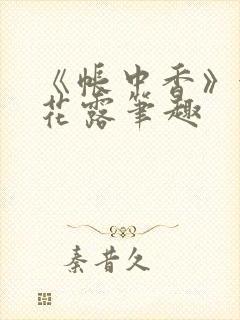 《帐中香》
花露笔趣
秦昔久